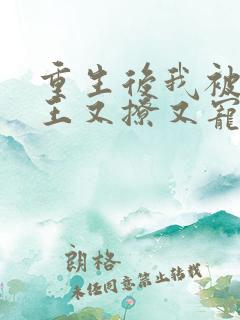 重生後我被
王又撩又寵
朗格
未任同意禁止转载